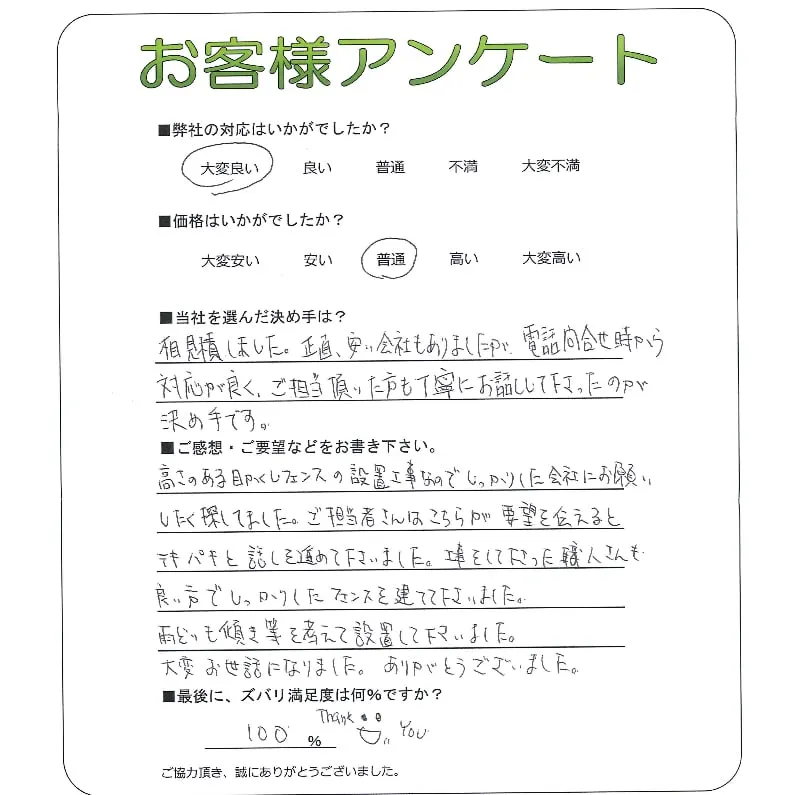 お客様アンケート
■弊社の対応はいかがでしたか？
大変良い 良い 普通 不満 大変不満
■価格はいかがでしたか？
大変安い 安い 普通 高い 大変高い
■当社を選んだ決め手は？
相見積しました。正直、安い会社もありましたが、電話問合せ時から
対応が良く、ご担当頂いた方も丁寧にお話しして下さったのが
決め手です。
■ご感想・ご要望などをお書き下さい。
高さのある目かくしフェンスの設置工事なのでしっかりした会社にお願い
したく探してました。ご担当者さんはこちらが要望を伝えると
テキパキと話しを進めて下さいました。工事をして下さった職人さんも
良い方でしっかりしたフェンスを建てて下さいました。
雨どいも傾き等を考えて設置して下さいました。
大変お世話になりました。ありがとうございました。
■最後に、ズバリ満足度は何%ですか？
100 % Thank You
ご協力頂き、誠にありがとうございました。